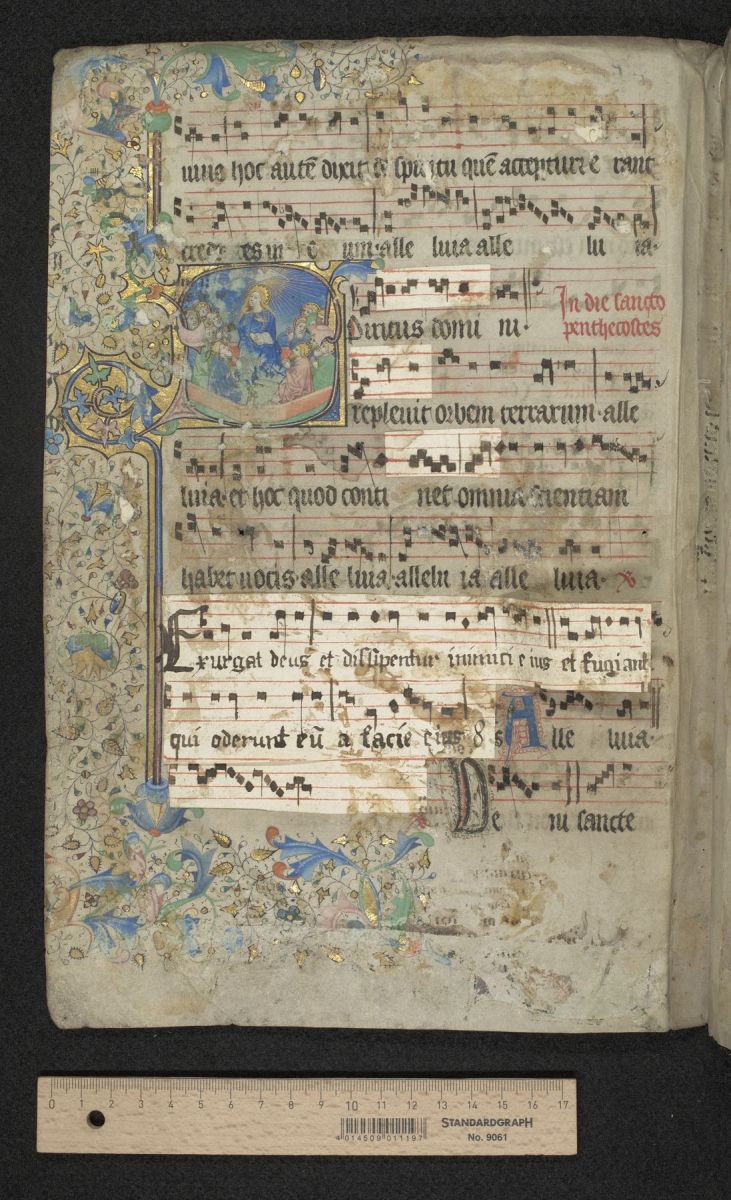 viva hoc autē dixit de spiritu quē accepturi e rant
creden tes in e um·alle luia alle lu ia·
Spiritus domi ni·
In die sancto
penthecostes
replevit orbem terrarum·alle
luia·et hoc quod conti net omnia scientiam
habet vocis·alle luia·alleluia alle luia·
Exurgat deus et dissipentur inimici eius et fugiant
qui oderunt eū a facie eius 8 s Alle luia·
Ve ni sancte
0 1 2 3 4 5 6 7 8 9 10 11 12 13 14 15 16 17
4 014509 011197
STANDARDGRAPH
No. 9061